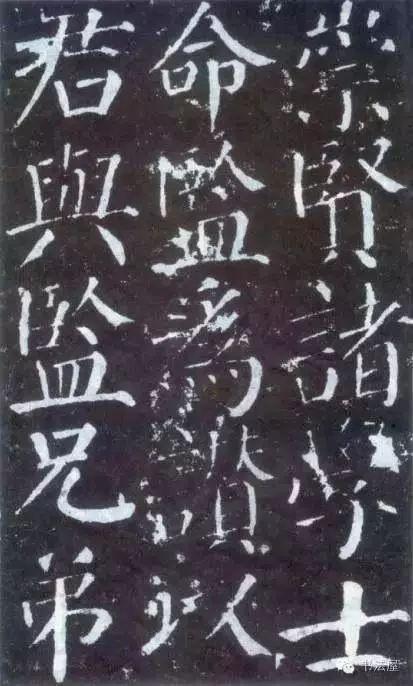 崇賢諸學士
命監爲讚以
若與監兄弟
书法屋